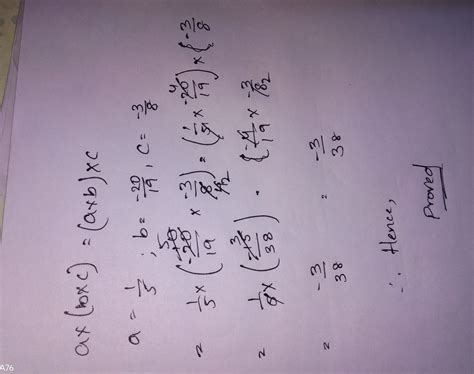 a×(b×c) = (a×b)×c
a = 1/5 ; b = -20/19 , c = -3/8
= 1/5 × (-20/19 × -3/8) = (1/5 × -20/19) × {-3/8
= 1/5 × (-15/38) = {-4/19 × -3/8
= -3/38 = -3/38
∴ Hence,
Proved
A76